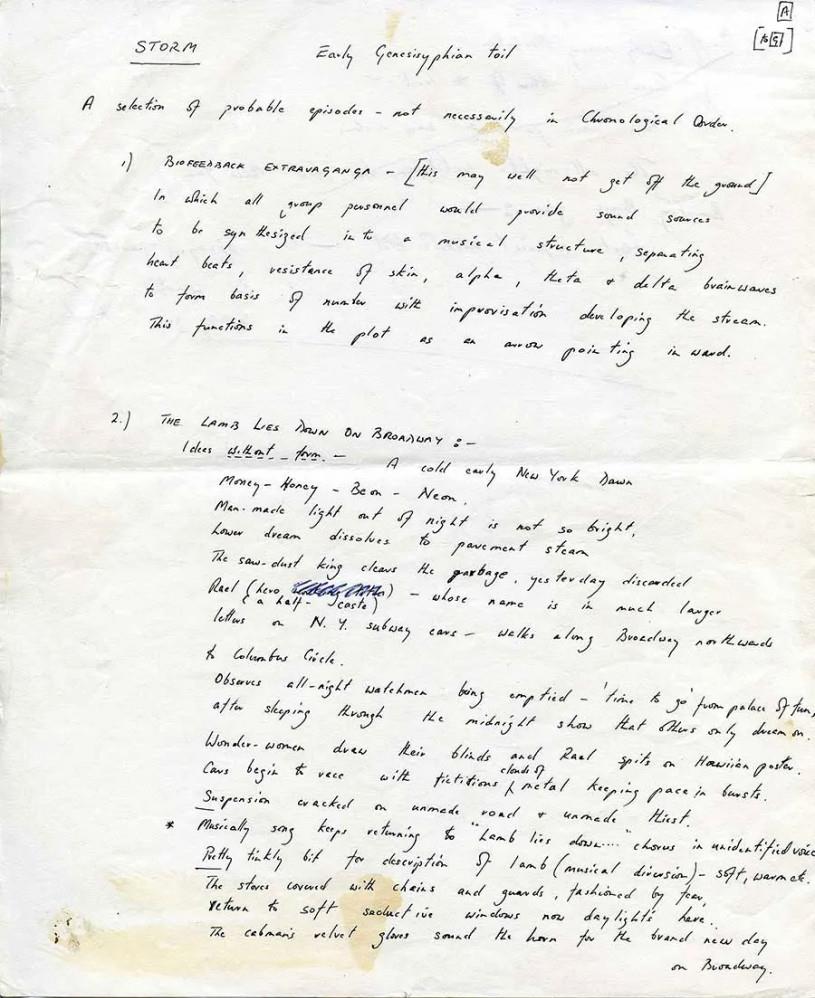 A
[to G]
STORM Early Genesisyphian toil
A selection of probable episodes - not necessarily in Chronological Order.
1) BIOFEEDBACK EXTRAVAGANGA - [this may well not get off the ground]
In which all group personnel would provide sound sources
to be synthesized in to a musical structure, separating
heart beats, resistance of skin, alpha, theta & delta brainwaves
to form basis of number with improvisation developing the stream.
This functions in the plot as an arrow pointing inward.
2.) THE LAMB LIES DOWN ON BROADWAY :-
Ideas without form - A cold early New York Dawn
Money - Honey - Be on - Neon.
Man-made light out of night is not so bright,
Lower dream dissolves to pavement steam
The saw-dust king clears the garbage, yesterday discarded
Rael (hero) - whose name is in much larger
(a half-caste)
letters on N.Y. subway cars - walks along Broadway northwards
to Columbus Circle.
Observes all-night watchmen being emptied - 'time to go' from palace of fun,
after sleeping through the midnight show that others only dream on.
Wonder-women draw their blinds and Rael spits on Hawiian poster.
clouds of
Cars begin to race with fictitious metal keeping pace in bursts.
Suspension cracked on unmade road & unmade thirst.
* Musically song keeps returning to "Lamb lies down...." chorus in unidentified voice
Pretty tinkly bit for description of lamb (musical diversion) - soft, warm etc.
The stores covered with chains and guards, fashioned by fear,
return to soft seductive windows now daylights here.
The cabman's velvet gloves sound the horn for the brand new day
on Broadway.